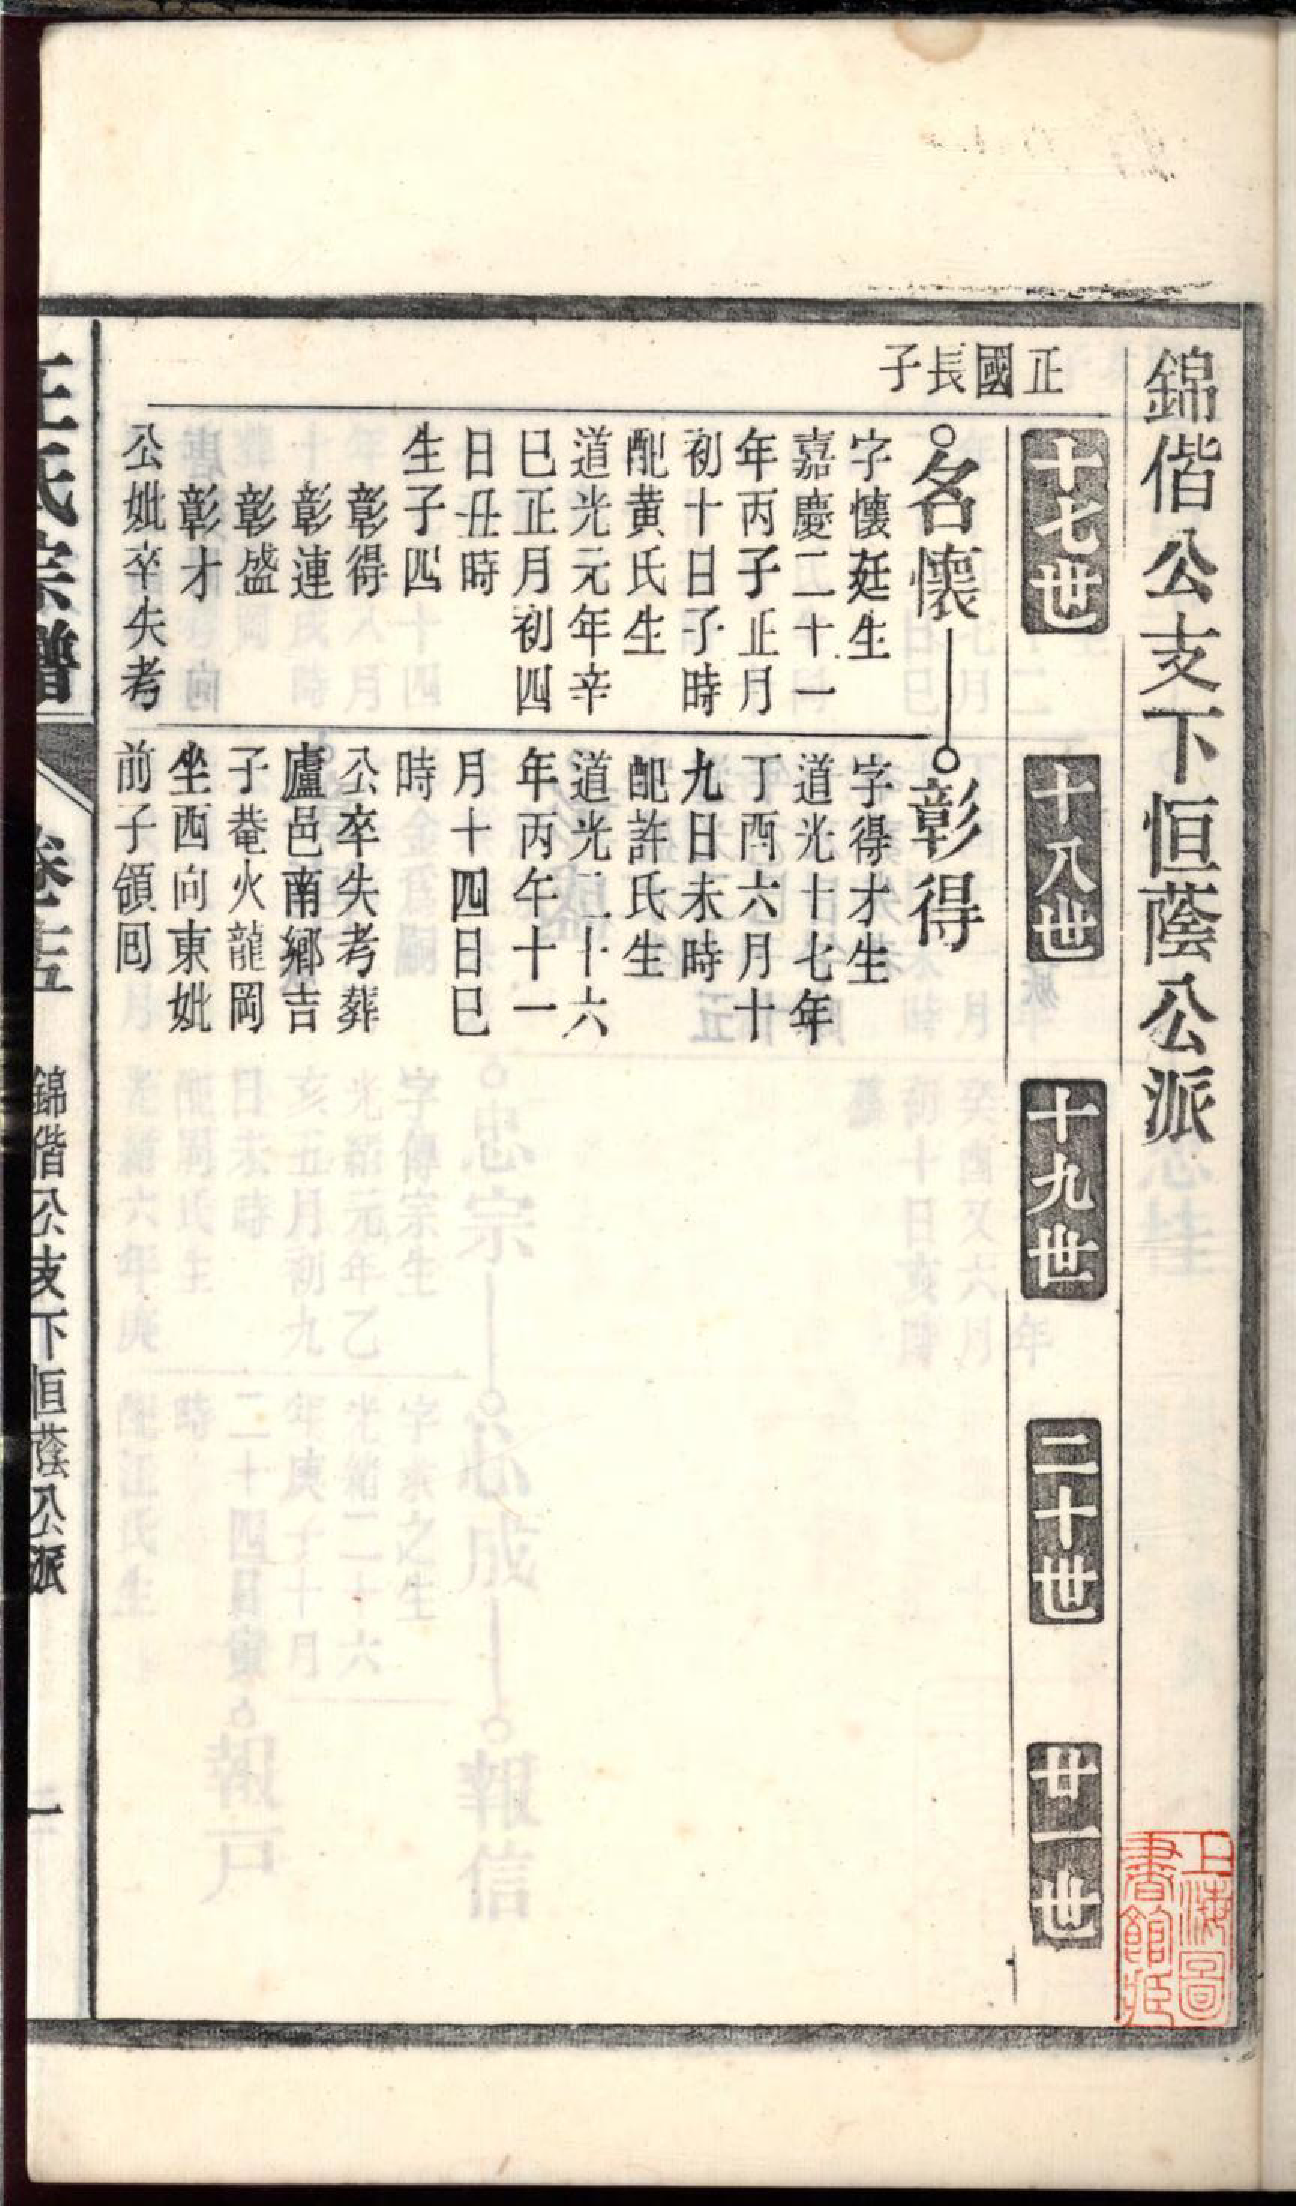 錦偕公支下恒蔭公派
十七世
十八世
十九世
二十世
廿一世
正國長子
名懷
字懷廷生
嘉慶二十一
年丙子正月
初十日子時
配黃氏生
道光元年辛
巳正月初四
日丑時
生子四
彰得
彰連
彰盛
彰才
公妣卒失考
彰得
字得才生
道光十七年
丁酉六月十
九日未時
配許氏生
道光二十六
年丙午十一
月十四日巳
時
公卒失考葬
廬邑南鄉吉
子菴火龍岡
坐西向東妣
前子領回
氏宗譜
錦偕公支下恒蔭公派
一
上海圖
書館藏